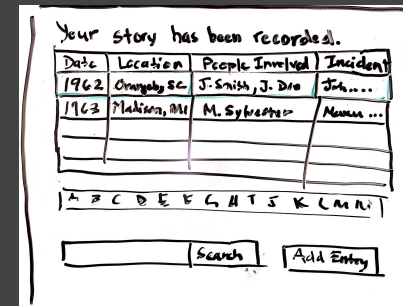 Your story has been recorded.
Date Location People Involved Incident
1962 Orangeb, SC J. Smith, J. Doe Joh....
1963 Madison, M. Sylvester ...
A B C D E F G H I J K L M N
Search Add Entry